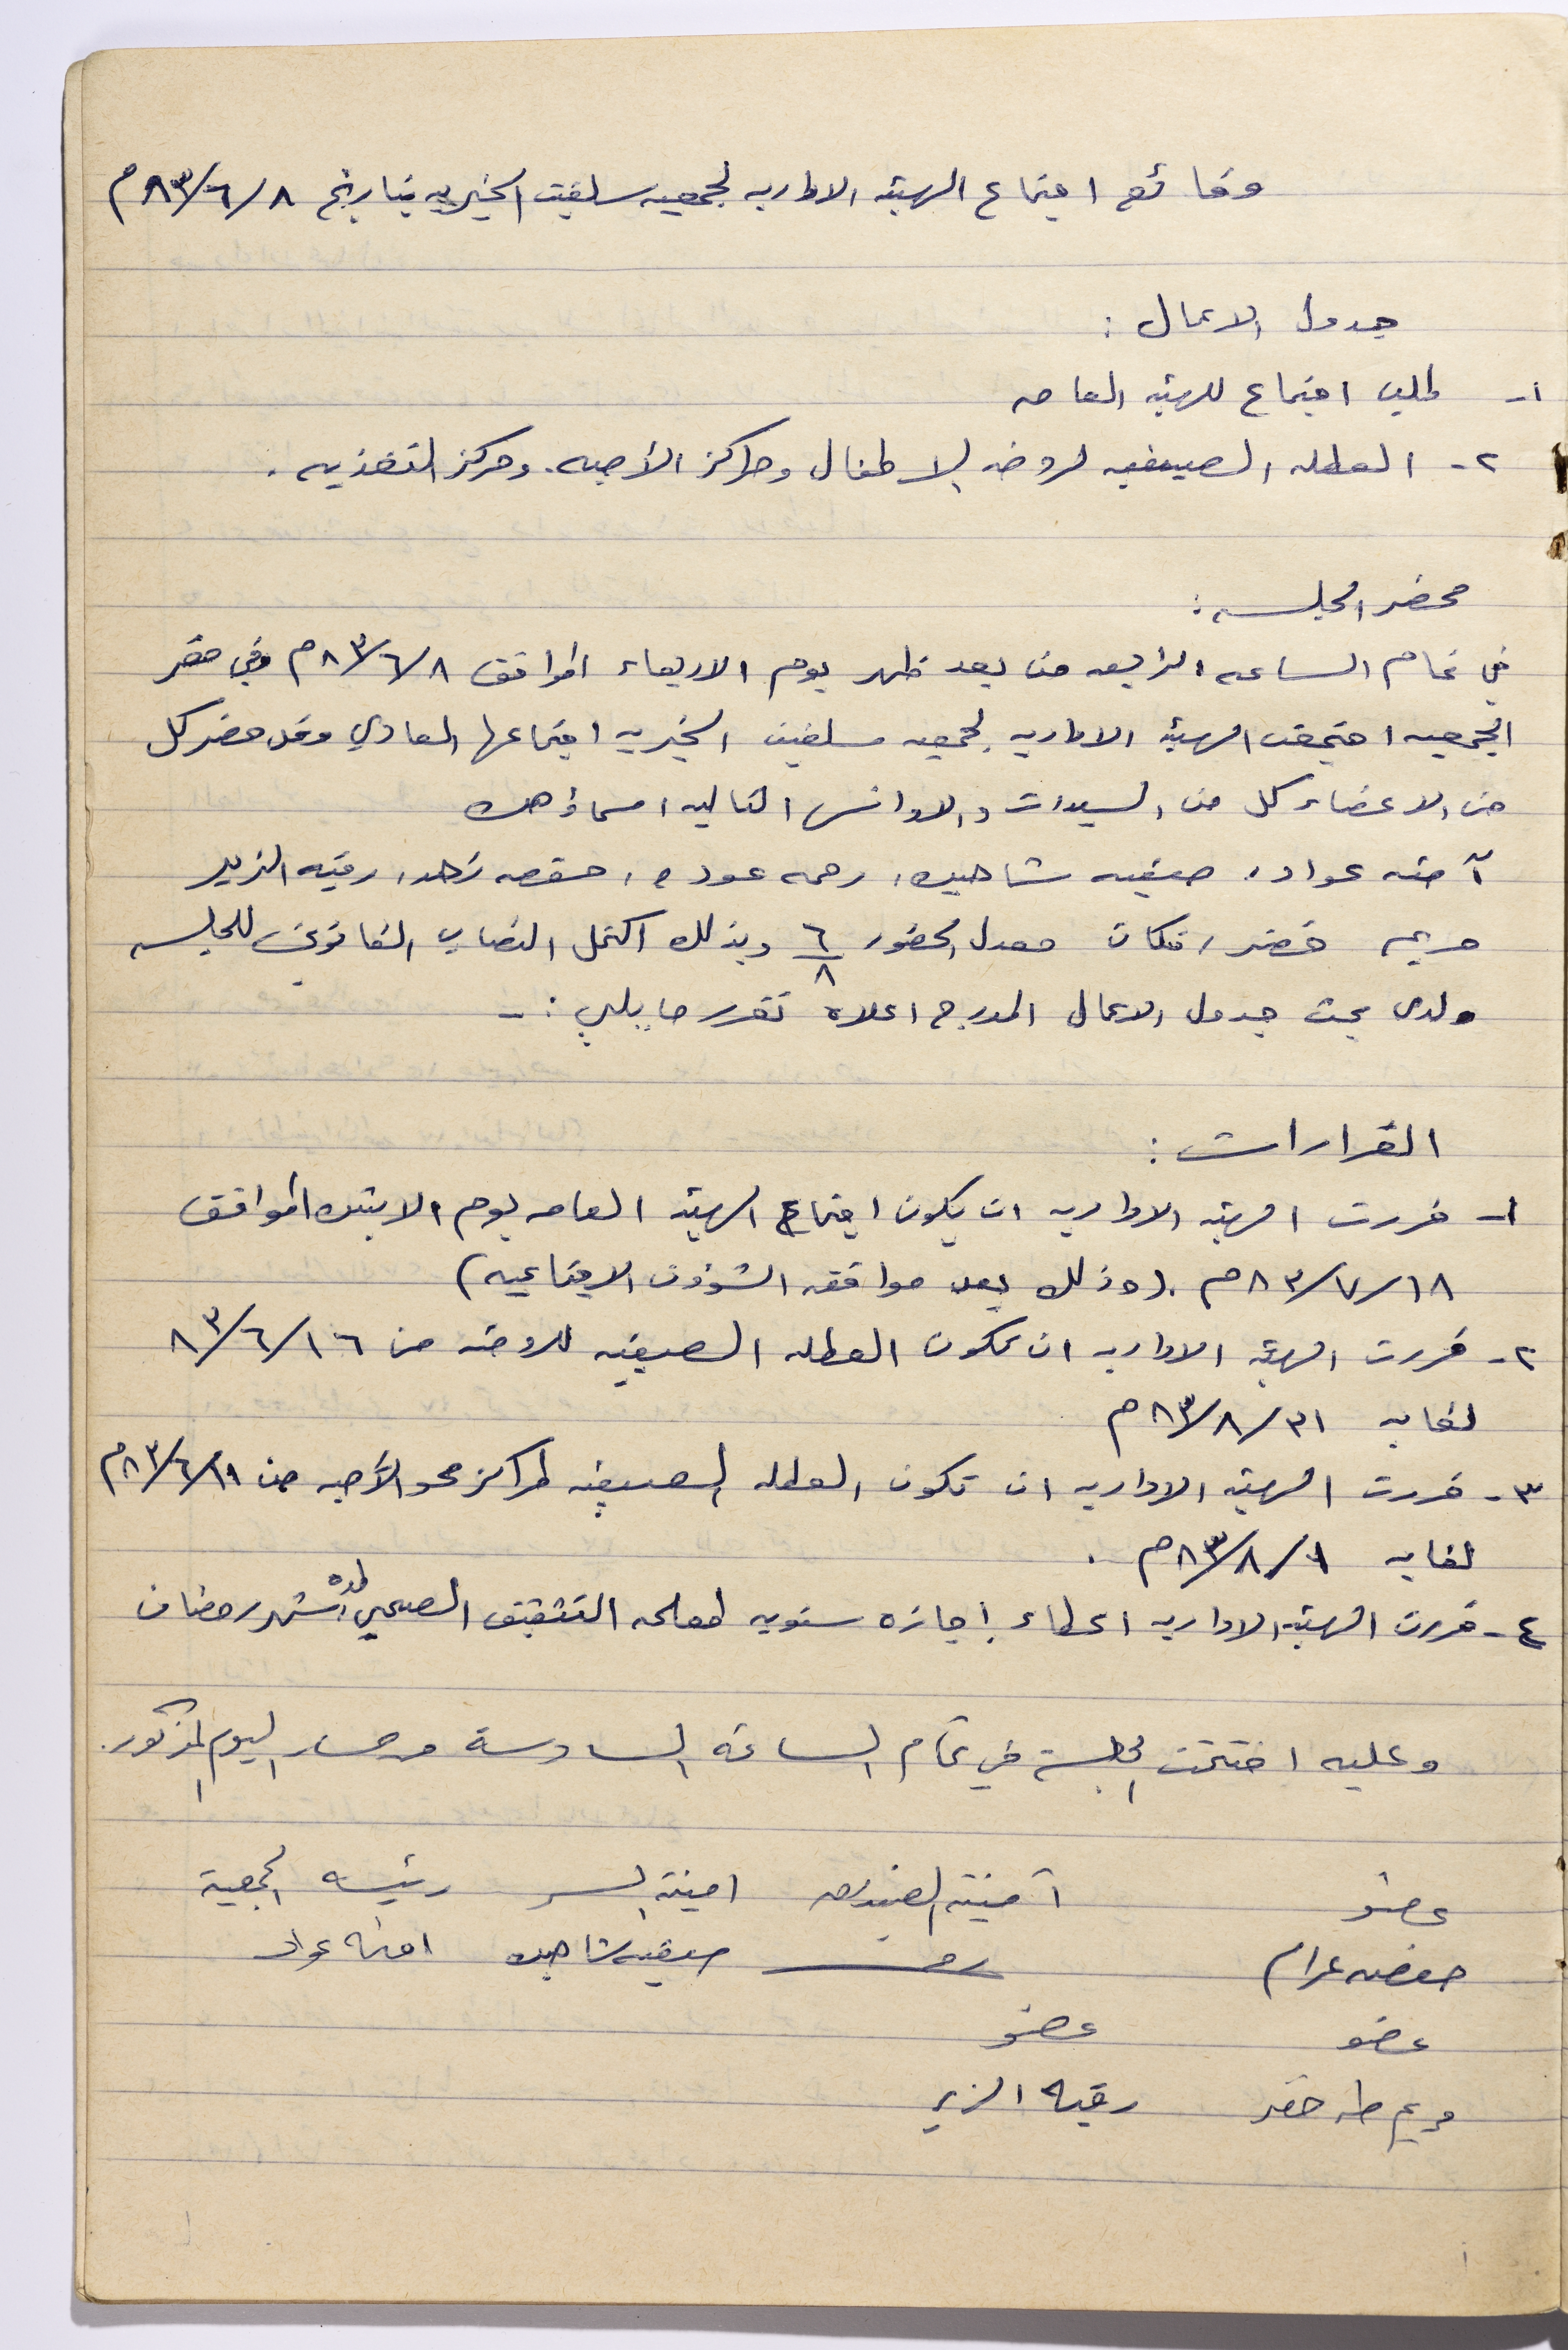 وقائع اجتماع الهيئه الاداريه لجمعيه سلفيت الخيريه بتاريخ ٨/٦/٨٣م
جدول الاعمال :
١- طلب اجتماع للهيئه العامه
٢- العطله الصيفيه لروضه الاطفال ومراكز الأميه. ومركز التغذيه.
محضر الجلسه :
في تمام الساعه الرابعه من بعد ظهر يوم الاربعاء الموافق ٨/٦/٨٣م وفي مقر
الجمعيه اجتمعت الهيئه الاداريه لجمعيه سلفيت الخيريه اجتماعها العادي وقد حضر كل
من الاعضاء كل من السيدات والاوانس التاليه اسماؤهن
آمنه عواد، صفيه شاهين، رحمه عوده، حفصه زهد، رقيه الزير
مريم خضر، فكان معدل الحضور ٦/٨ وبذلك اكتمل النصاب القانوني للجلسه
ولدى بحث جدول الاعمال المدرج اعلاه تقرر ما يلي :-
القرارات :
١- قررت الهيئه الاداريه ان يكون اجتماع الهيئه العامه يوم الاثنين الموافق
١٨/٧/٨٣م. (وذلك بعد موافقه الشؤون الاجتماعيه)
٢- قررت الهيئه الاداريه ان تكون العطله الصيفيه للروضه من ١٦/٦/٨٣
لغايه ٣١/٨/٨٣م
٣- قررت الهيئه الاداريه ان تكون العطله الصيفيه لمراكز محو الأميه من /٦/٨٣م
لغايه /٨/٨٣م .
٤- قررت الهيئه الاداريه اعطاء اجازه سنويه لمعلمه التثقيف الصحي لمده شهر رمضان
وعليه اختتمت الجلسة في تمام الساعة السادسة من مساء اليوم المذكور.
عضو آمينة الصندوق امينة السر رئيسه الجمعية
حفصه عزام صفيه شاهين امنه عواد
عضو عضو
مريم طه خضر رقيه الزير